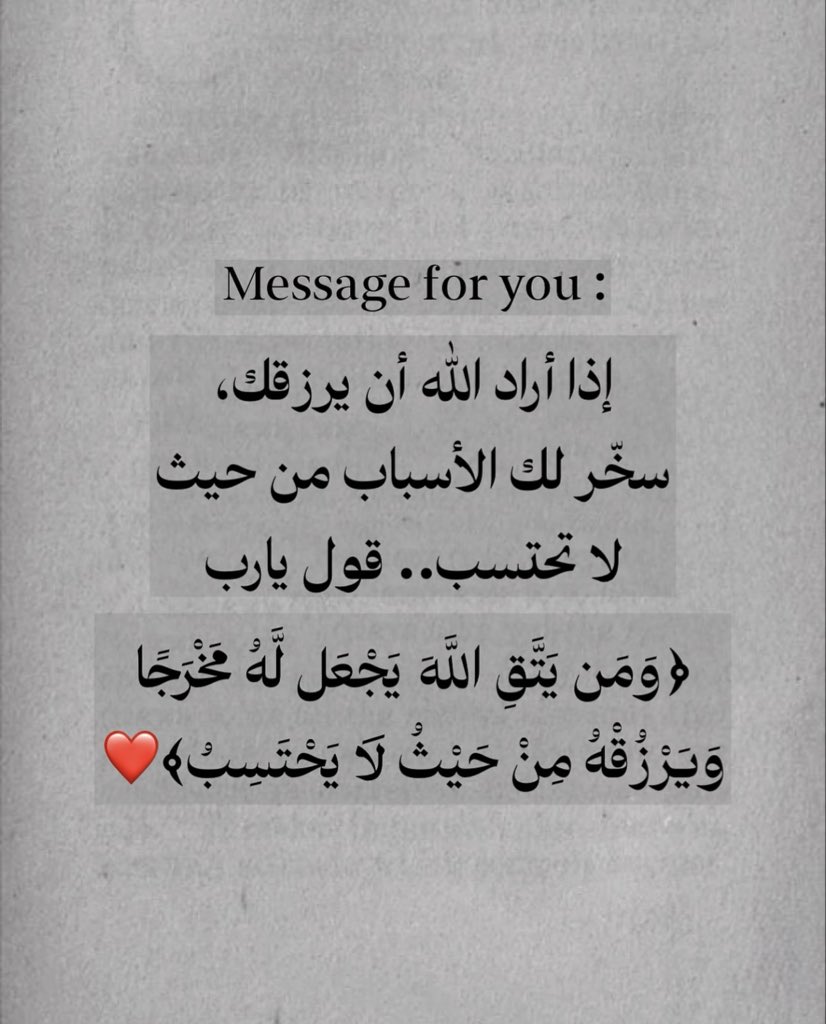 Message for you :
إذا أراد الله أن يرزقك،
سخّر لك الأسباب من حيث
لا تحتسب.. قول يارب
﴿وَمَن يَتَّقِ اللَّهَ يَجْعَل لَّهُ مَخْرَجًا
وَيَرْزُقْهُ مِنْ حَيْثُ لَا يَحْتَسِبُ﴾❤️